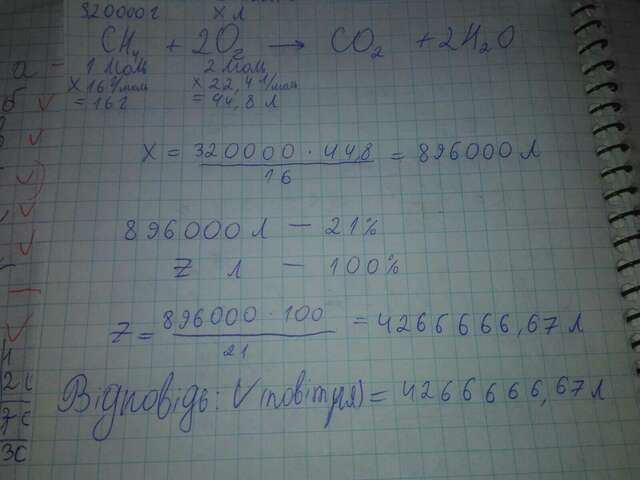 320000 г x л
CH₄ + 2O₂ → CO₂ + 2H₂O
1 моль 2 моль
x 16 г/моль x 22,4 л/моль
= 16 г = 44,8 л
X = 320000 · 44,8 / 16 = 896000 л
896000 л — 21%
Z л — 100%
Z = 896000 · 100 / 21 = 4266666,67 л
Відповідь: V(повітря) = 4266666,67 л